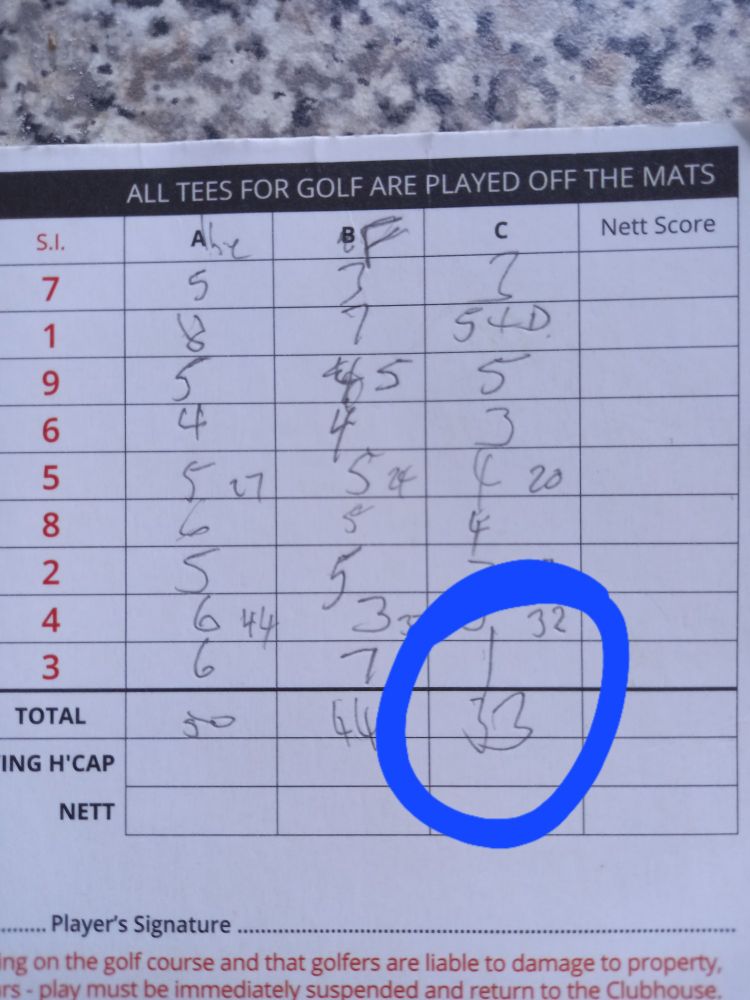 ALL TEES FOR GOLF ARE PLAYED OFF THE MATS
S.I. A B F C Nett Score
7 5 3 3
1 8 7 5 + D.
9 5 5 5
6 4 4 3
5 5 27 5 24 4 20
8 6 5 4
2 5 5
4 6 44 3 32
3 6 7 1
TOTAL 50 44 33
ING H'CAP
NETT
........ Player's Signature ................................................
ing on the golf course and that golfers are liable to damage to property,
rs - play must be immediately suspended and return to the Clubhouse.